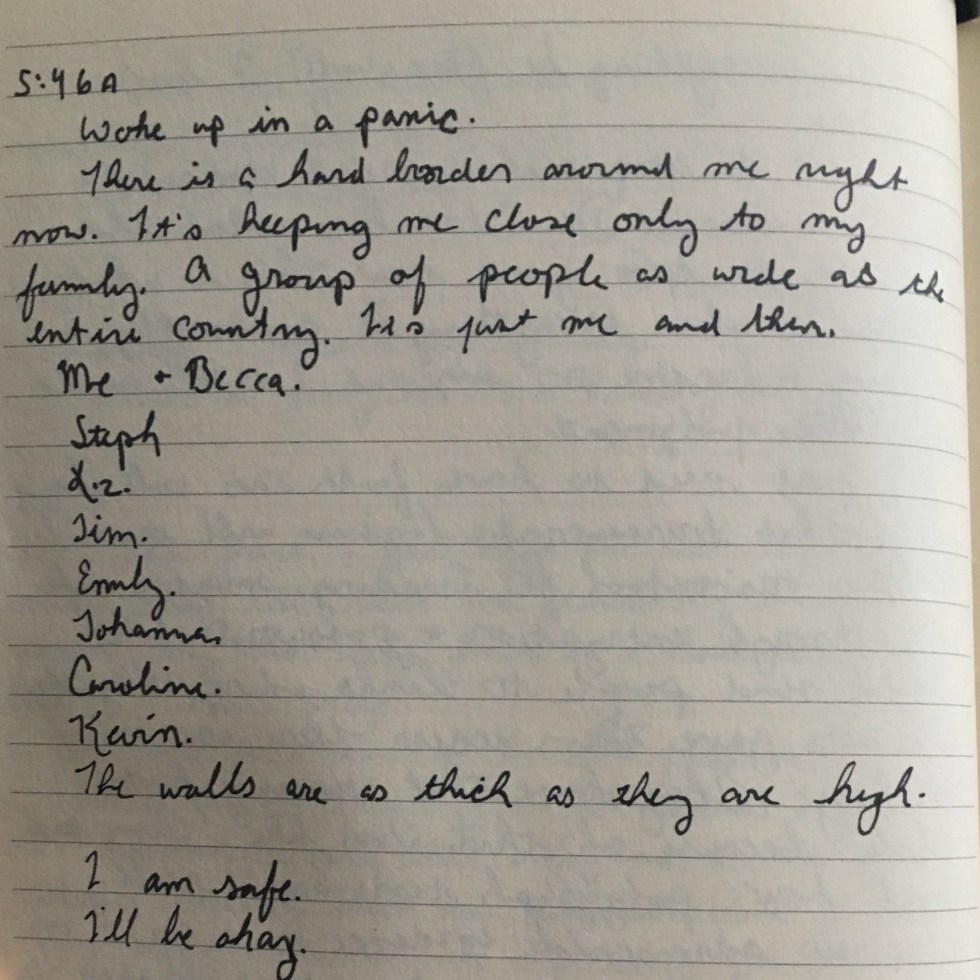 5:46A
Woke up in a panic.
There is a hard border around me right
now. It's keeping me close only to my
family. A group of people as wide as the
entire country. It's just me and them.
Me + Becca.
Steph
Liz.
Jim.
Emily.
Johanna.
Caroline.
Kevin.
The walls are as thick as they are high.
I am safe.
I'll be okay.